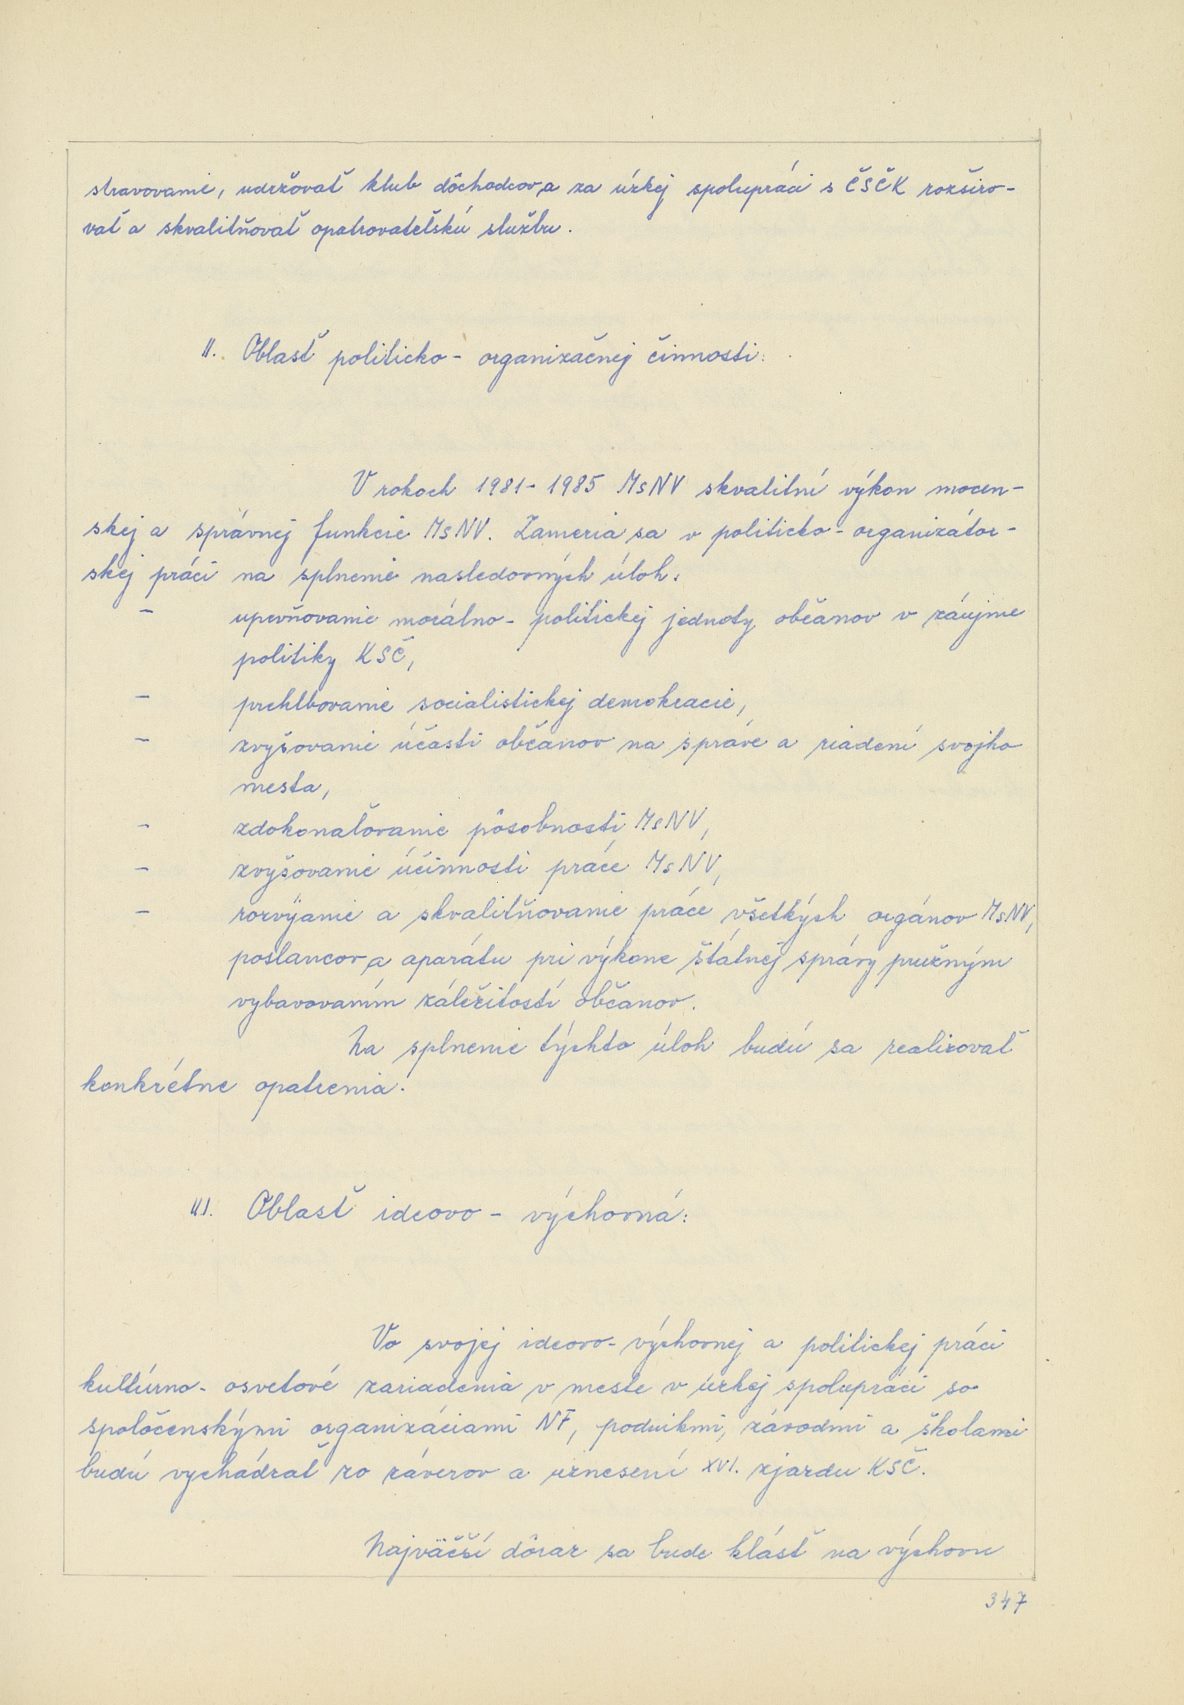 stravovanie, udržovať klub dôchodcov a za úzkej spolupráci s ČSČK rozširo-
vať a skvalitňovať opatrovateľskú službu.
II. Oblasť politicko - organizačnej činnosti:
V rokoch 1981 - 1985 MsNV skvalitní výkon mocen-
skej a správnej funkcie MsNV. Zameria sa v politicko - organizátor-
skej práci na splnenie nasledovných úloh:
- upevňovanie morálno - politickej jednoty občanov v záujme
politiky KSČ,
- prehlbovanie socialistickej demokracie,
- zvyšovanie účasti občanov na správe a riadení svojho
mesta,
- zdokonaľovanie pôsobnosti MsNV,
- zvyšovanie účinnosti práce MsNV,
- rozvíjanie a skvalitňovanie práce všetkých orgánov MsNV,
poslancov a aparátu pri výkone štátnej správy pružným
vybavovaním záležitostí občanov.
Na splnenie týchto úloh budú sa realizovať
konkrétne opatrenia.
III. Oblasť ideovo - výchovná:
Vo svojej ideovo - výchovnej a politickej práci
kultúrno - osvetové zariadenia v meste v úzkej spolupráci so
spoločenskými organizáciami NF, podnikmi, závodmi a školami
budú vychádzať zo záverov a uznesení XVI. zjazdu KSČ.
Najväčší dôraz sa bude klásť na výchovu
347